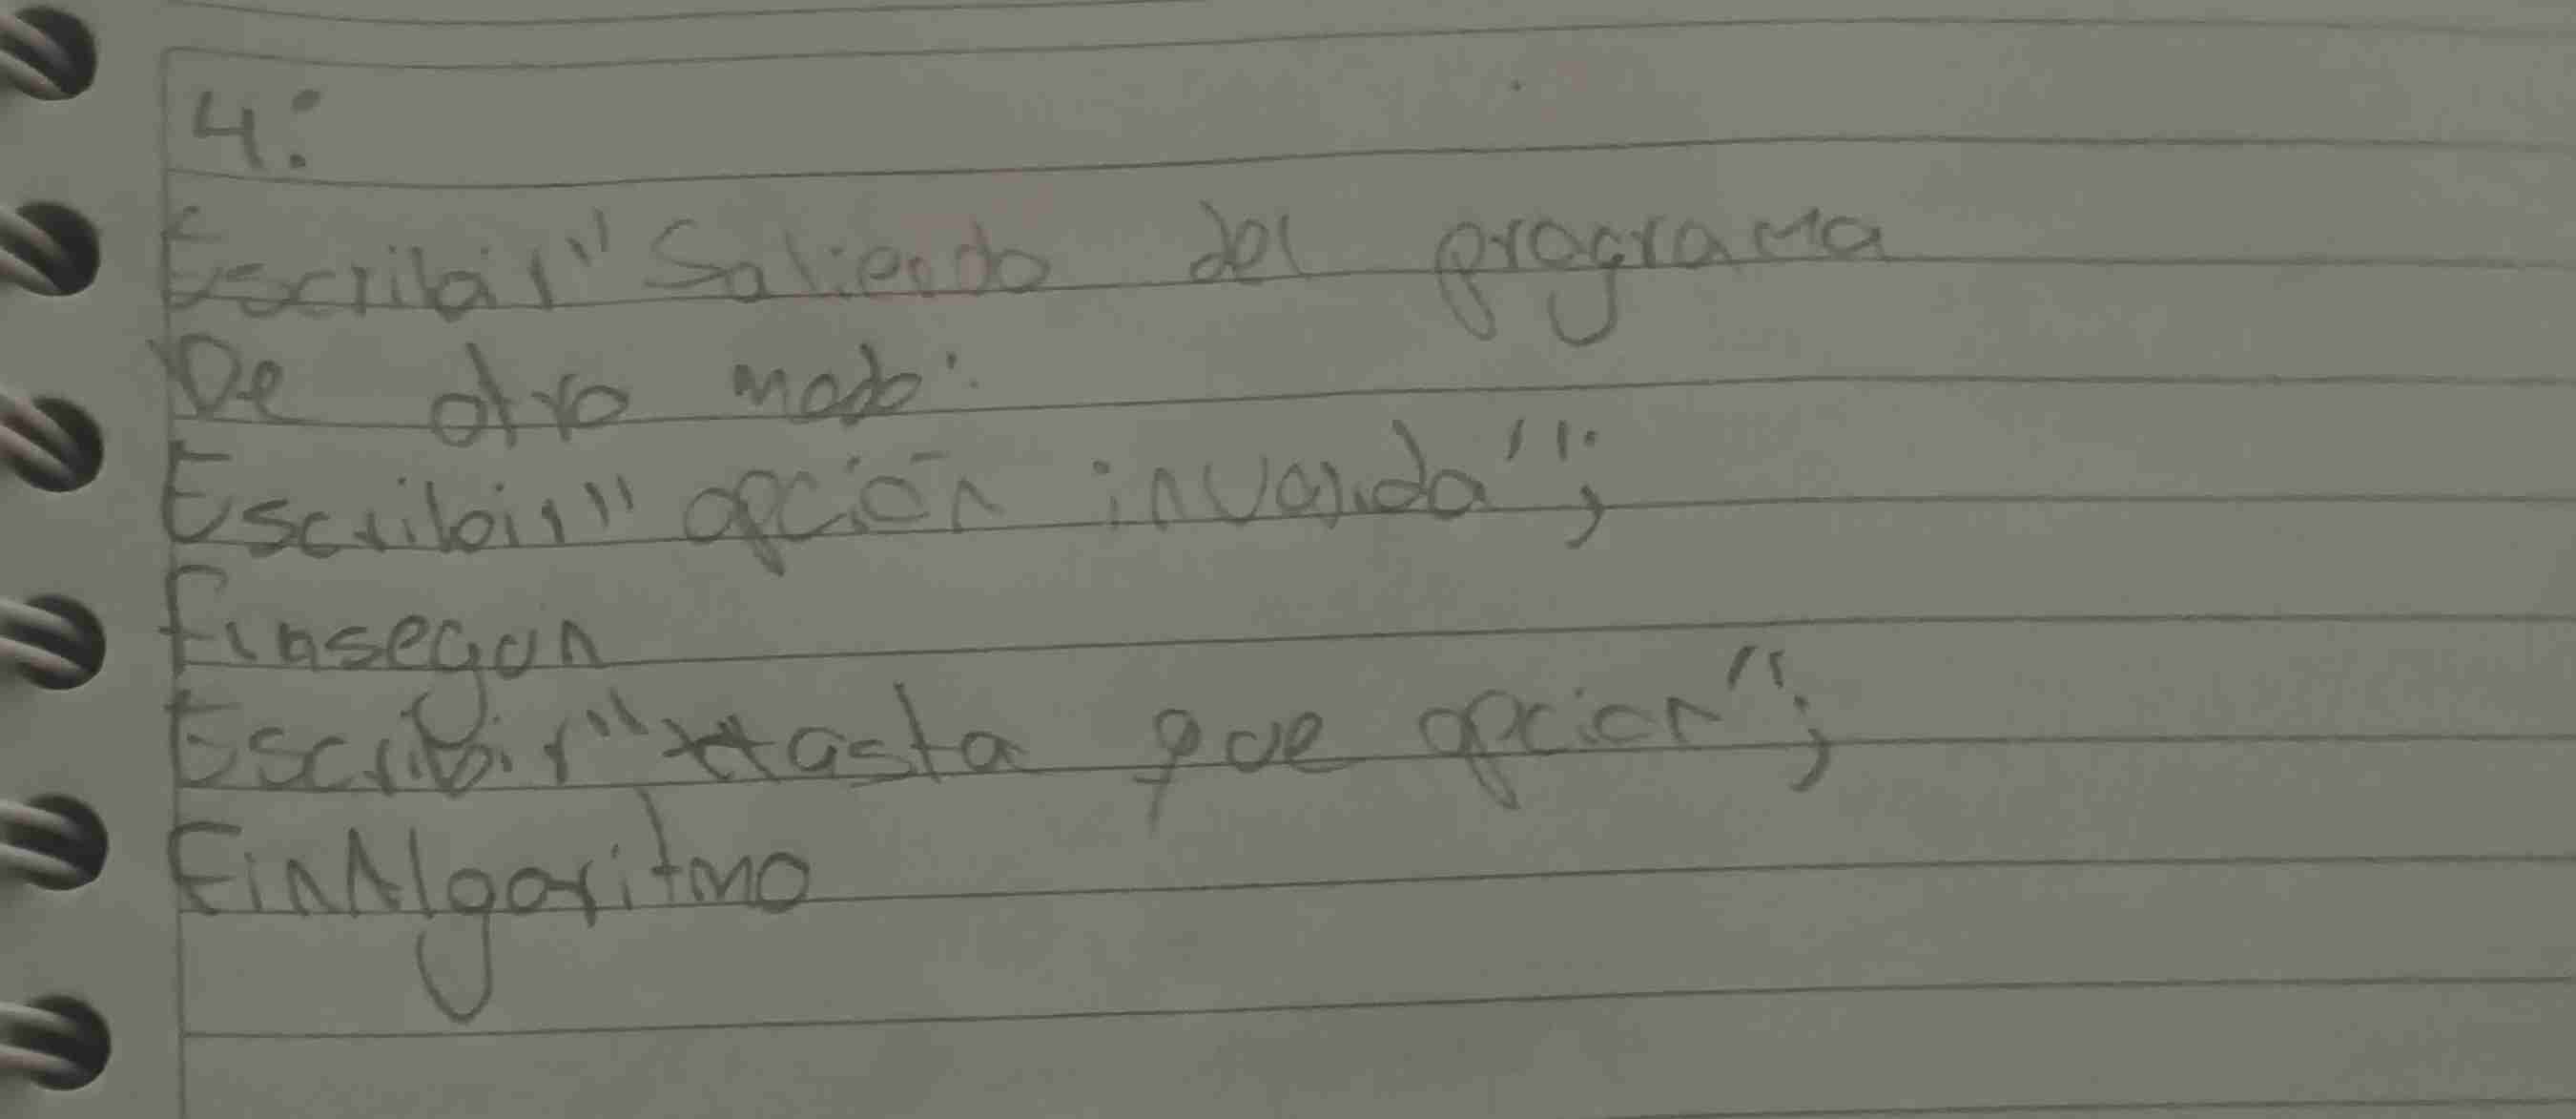 4:
Escribir" Saliendo del programa
De otro modo:
Escribir" opción invalida";
finsegun
Escribir" Hasta que opcion";
FinAlgoritmo